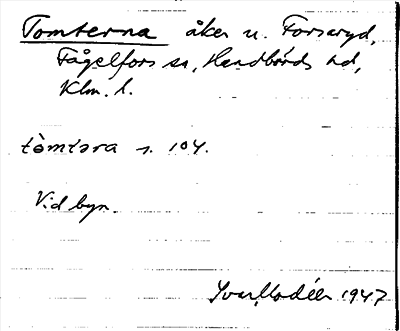 Tomterna åker u. Forsaryd,
Fågelfors sn, Handbörds hd,
Klm. l.
tòmtəra s. 104.
Vid byn.
Ivar Modéer 1947